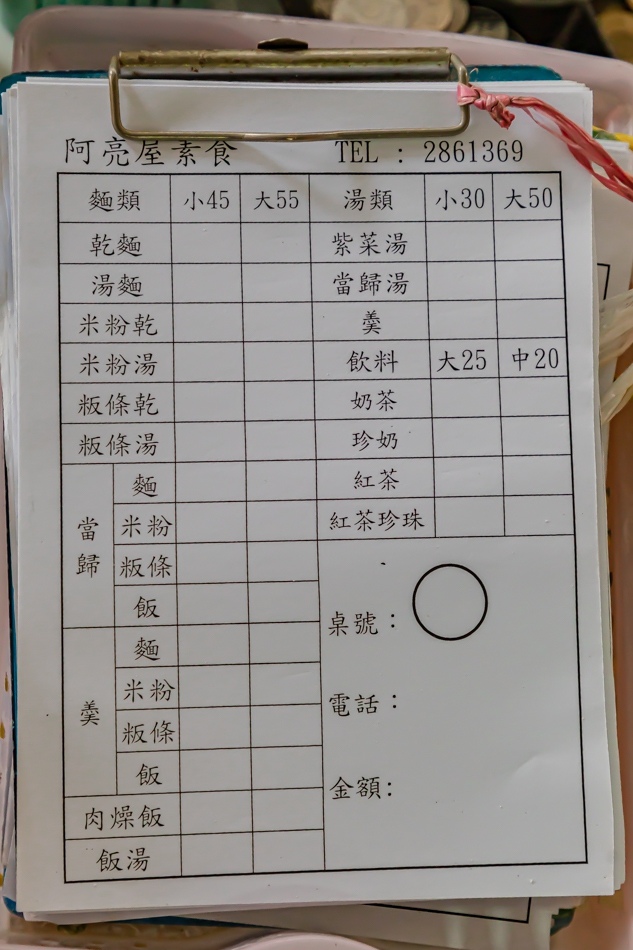 阿亮屋素食 TEL : 2861369
麵類 小45 大55 湯類 小30 大50
乾麵 紫菜湯
湯麵 當歸湯
米粉乾 羹
米粉湯 飲料 大25 中20
粄條乾 奶茶
粄條湯 珍奶
當歸 麵 紅茶
米粉 紅茶珍珠
粄條
飯 桌號：
羹 麵
米粉 電話：
粄條
飯 金額:
肉燥飯
飯湯